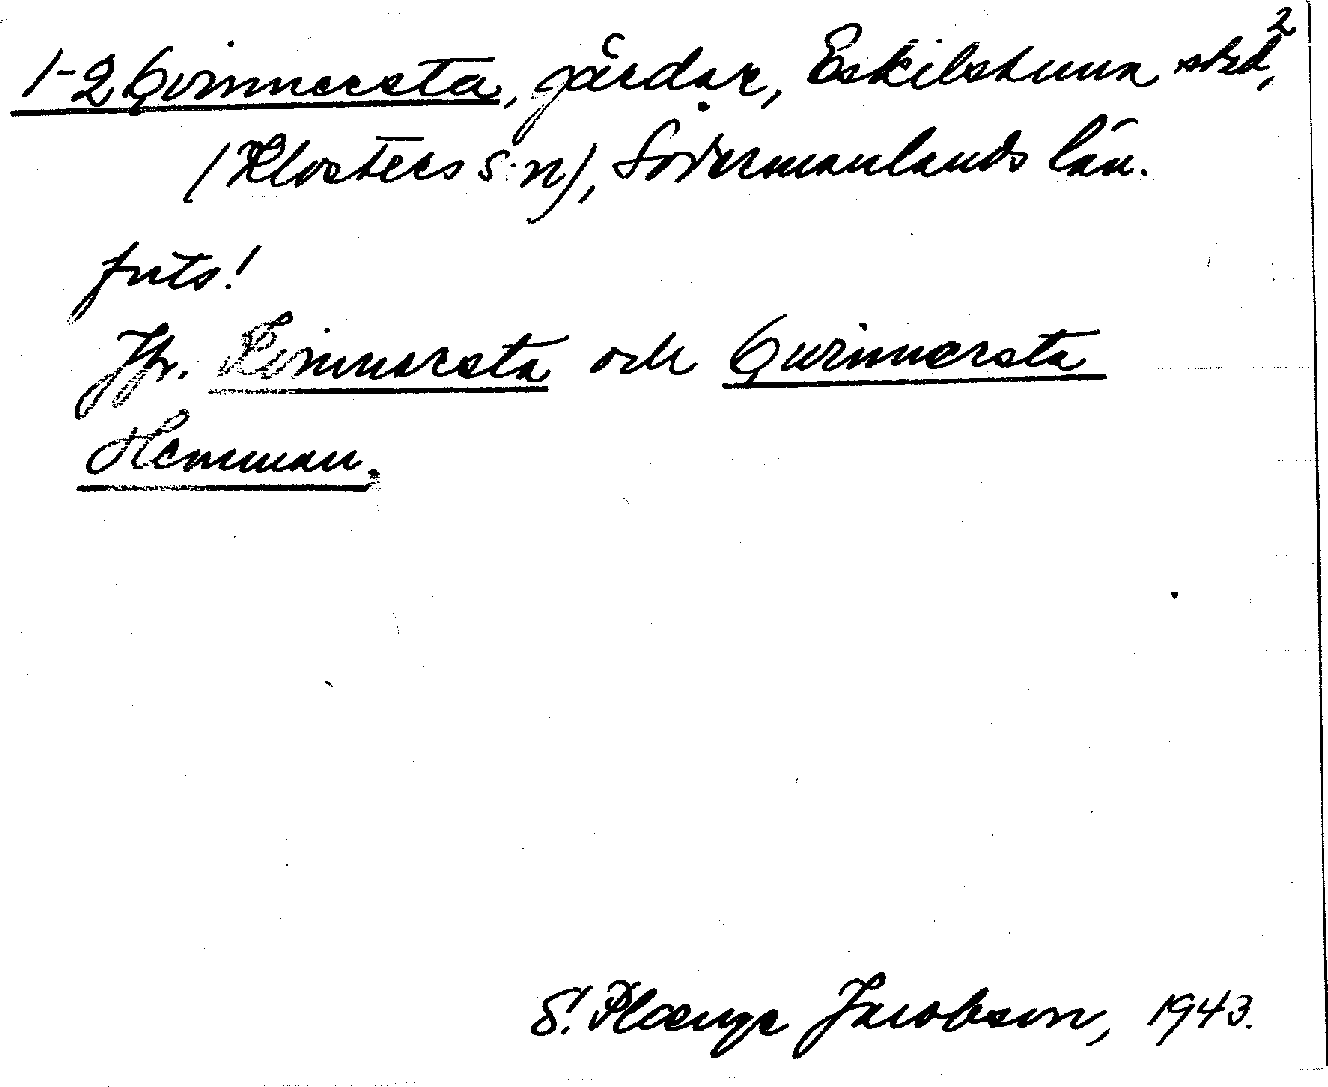 1-2 Qvinnersta, gårdar, Eskilstuna stad, 2
(Klosters s:n), Södermanlands län.
forts!
Jfr. Kvinnersta och Qvinnersta
Hemman.
S. Plænge Jacobson, 1943.